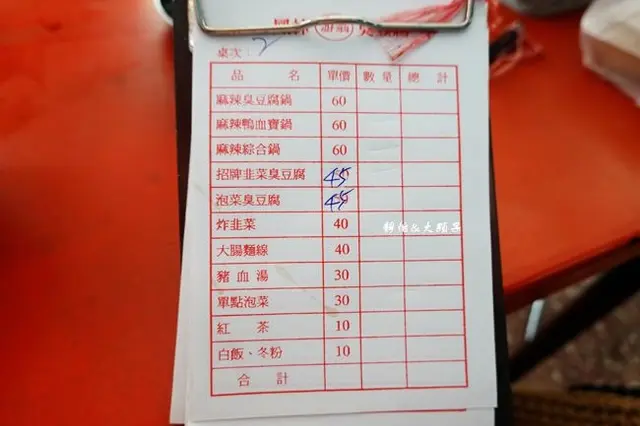 桌次: 2
品 名 單價 數量 總 計
麻辣臭豆腐鍋 60
麻辣鴨血寶鍋 60
麻辣綜合鍋 60
招牌韭菜臭豆腐 45
泡菜臭豆腐 45
炸韭菜 40
大腸麵線 40
豬血湯 30
單點泡菜 30
紅 茶 10
白飯、冬粉 10
合 計